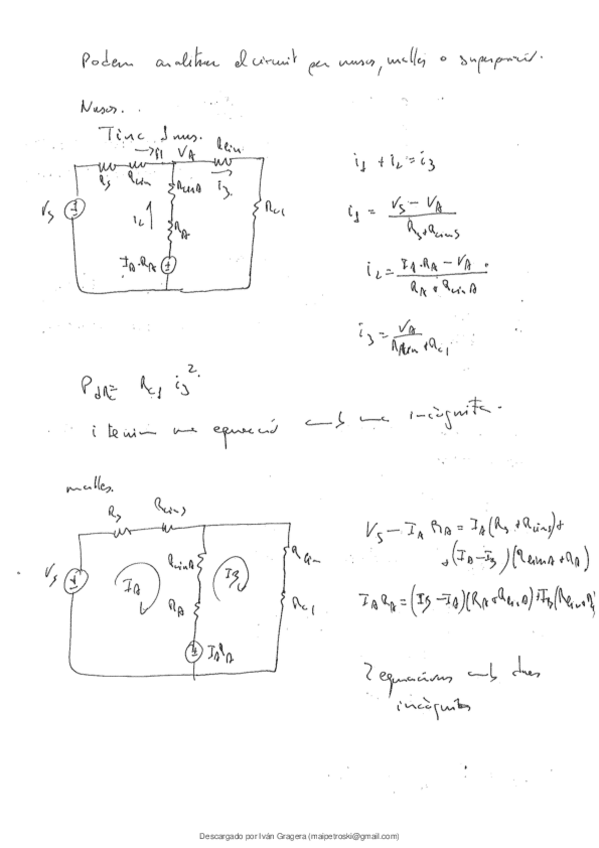 Podem analitzar el circuit per nusos, malles o superposició.
Nusos.
Tinc 1 nus.
i1 VA Rlin
Rs Rlins RlinA i3
Vs i2 RA Rc1
IA·RA
i1 + i2 = i3
i1 = (Vs − VA) / (Rs + Rlins)
i2 = (IA·RA − VA) / (RA + RlinA)
i3 = VA / (Rlin + Rc1)
Rc1 i3²
i tenim una equació amb una incògnita.
malles.
Rs Rlins
Vs IA RlinA IB Rlin
RA Rc1
IA RA
Vs − IA RA = IA(Rs + Rlins) +
+ (IA − IB)(RlinA + RA)
IA RA = (IB − IA)(RA + RlinA) + IB(Rlin + R
2 equacions amb dues
incògnites
Descargado por Iván Gragera (maipetroski@gmail.com)